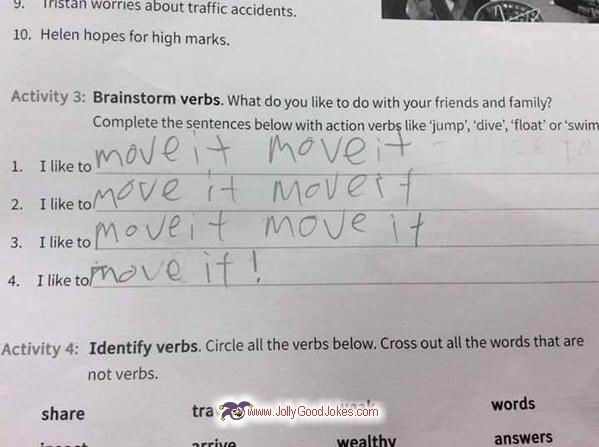 9. Tristan worries about traffic accidents.
10. Helen hopes for high marks.
Activity 3: Brainstorm verbs. What do you like to do with your friends and family?
Complete the sentences below with action verbs like 'jump', 'dive', 'float' or 'swim
1. I like to move it move it
2. I like to move it move it
3. I like to move it move it
4. I like to move it!
Activity 4: Identify verbs. Circle all the verbs below. Cross out all the words that are
not verbs.
share tra www.JollyGoodJokes.com words
arrive wealthy answers